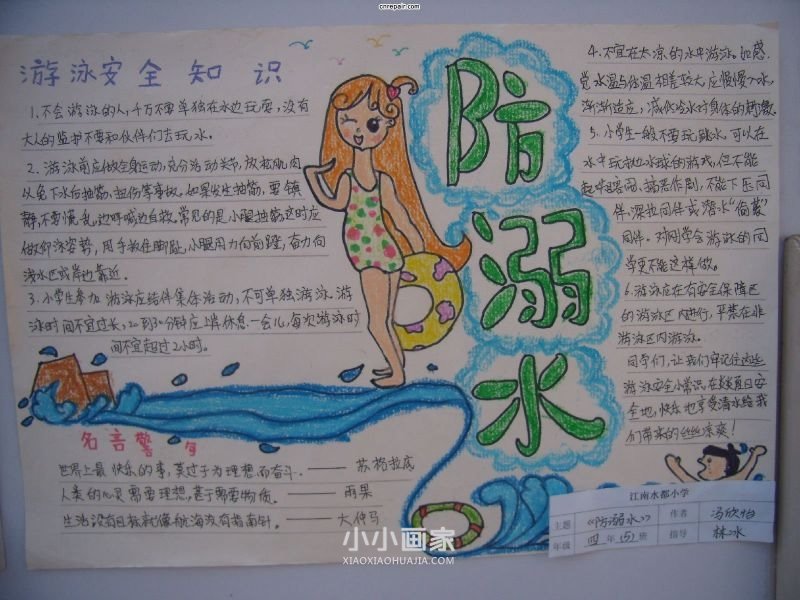 cnrepair.com
游泳安全知识
1.不会游泳的人,千万不要单独在水边玩耍,没有
大人的监护不要和伙伴们去玩水。
2.游泳前应做全身运动,充分活动关节,放松肌肉
以免下水后抽筋,扭伤等事故,如果发生抽筋,要镇
静,不要慌乱,边呼喊边自救。常见的是小腿抽筋,这时应
做仰泳姿势,用手扳住脚趾,小腿用力向前蹬,奋力向
浅水区或岸边靠近。
3.小学生参加游泳应结伴集体活动,不可单独游泳。游
泳时间不宜过长,20到30分钟应上岸休息一会儿,每次游泳时
间不宜超过2小时。
防溺水
4.不宜在太凉的水中游泳。如感
觉水温与体温相差较大,应慢慢入水,
渐渐适应,减少冷水对身体的刺激。
5.小学生一般不要玩跳水,可以在
水中玩抛水球的游戏,但不能
起哄,搞恶作剧,不能下压同
伴,深拉同伴或潜水“偷袭”
同伴。对同学会游泳的同
学更不能这样做。
6.游泳应在有安全保障区
的游泳区内进行,严禁在非
游泳区内游泳。
同学们,让我们牢记住这些
游泳安全小常识,在炎炎夏日安
全地,快乐地享受清水给我
们带来的丝丝凉爽!
名言警句
世界上最快乐的事,莫过于为理想而奋斗。——苏格拉底
人类的心灵需要理想,甚于需要物质。——雨果
生活没有目标就像航海没有指南针。——大仲马
江南水都小学
主题 《防溺水》 作者 冯欣怡
年级 四年(5)班 指导 林冰
小小画家
XIAOXIAOHUAJIA.COM